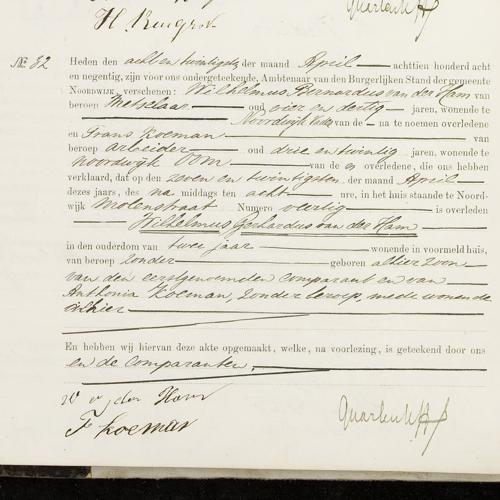 H. Ruigrok
No. 82
Heden den acht en twintigsten der maand April achttien honderd acht
en negentig, zijn voor ons ondergeteekende, Ambtenaar van den Burgerlijken Stand der gemeente
Noordwijk, verschenen: Wilhelmus Bernardus van der Ham van
beroep Metselaar oud vier en dertig jaren, wonende te
Noordwijk Vader van de na te noemen overledene
en Frans Koeman van
beroep arbeider oud drie en twintig jaren, wonende te
Noordwijk Oom van de overledene, die ons hebben
verklaard, dat op den zeven en twintigsten der maand April
dezes jaars, des na middags ten acht ure, in het huis staande te Noord-
wijk Molenstraat Numero veertig is overleden
Wilhelmus Gerhardus van der Ham
in den ouderdom van twee jaar wonende in voormeld huis,
van beroep zonder geboren alhier zoon
van den eerstgenoemden comparant en van
Anthonia Koeman, zonder beroep, mede wonende
alhier
En hebben wij hiervan deze akte opgemaakt, welke, na voorlezing, is geteekend door ons
en de comparanten.
W v der Ham
F Koeman